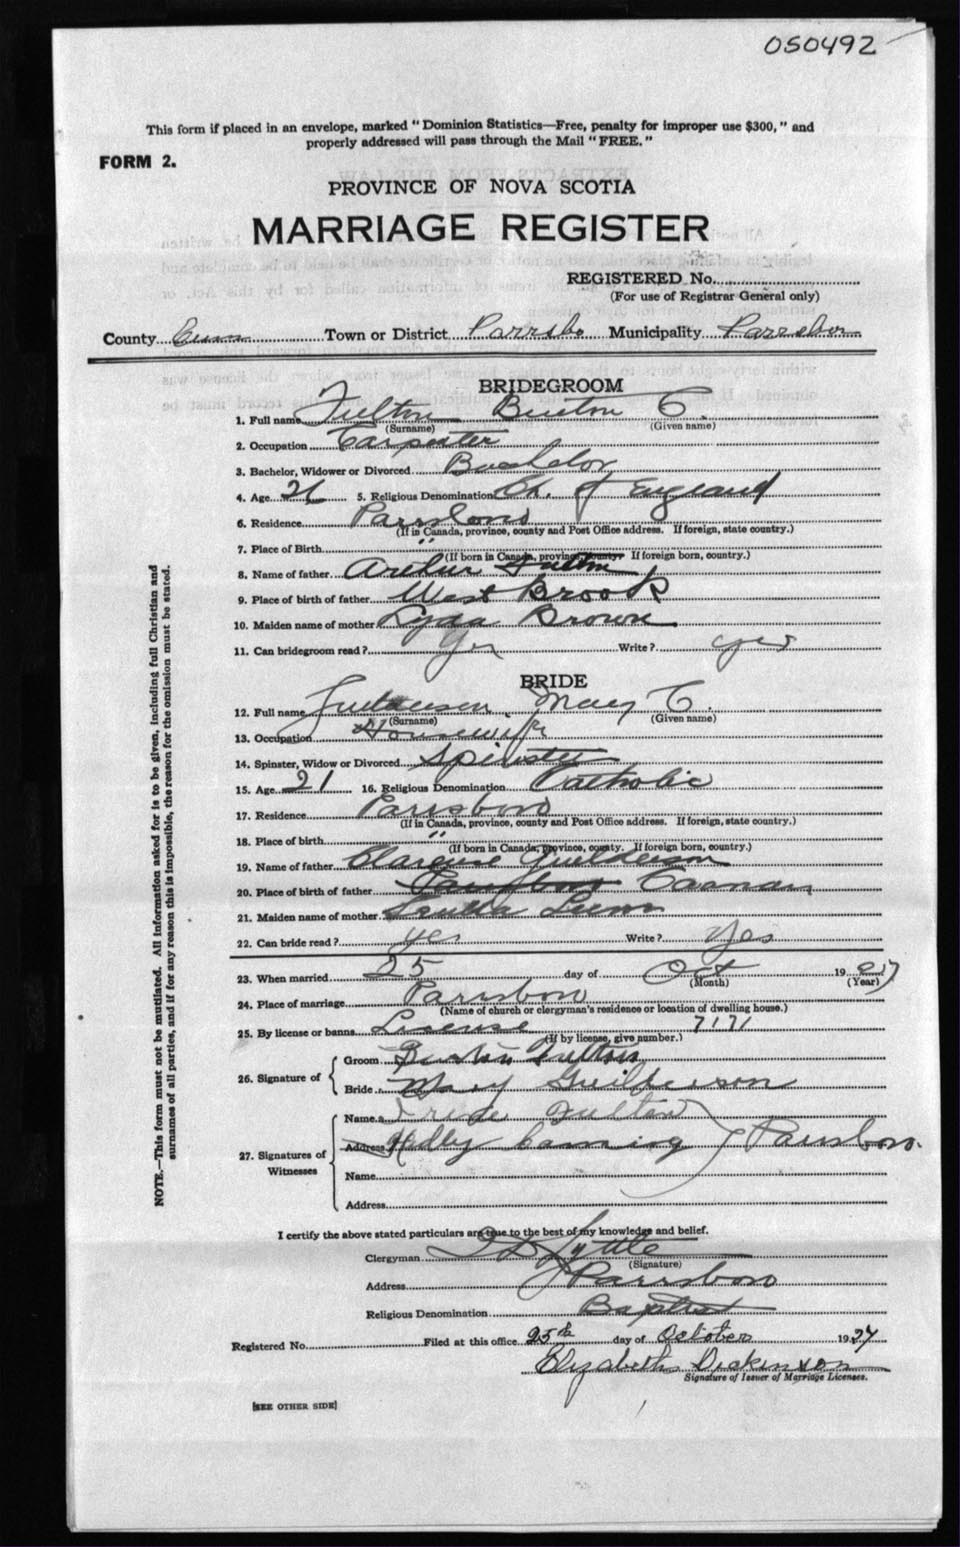 050492
This form if placed in an envelope, marked "Dominion Statistics—Free, penalty for improper use $300," and
properly addressed will pass through the Mail "FREE."
FORM 2.
PROVINCE OF NOVA SCOTIA
MARRIAGE REGISTER
REGISTERED No.
(For use of Registrar General only)
County Town or District Parrsbo Municipality Parrsboro
BRIDEGROOM
1. Full name Fulton Burton C.
(Surname) (Given name)
2. Occupation Carpenter
3. Bachelor, Widower or Divorced Bachelor
4. Age 26 5. Religious Denomination Ch. of England
6. Residence Parrsboro
(If in Canada, province, county and Post Office address. If foreign, state country.)
7. Place of Birth "
(If born in Canada, province, county If foreign born, country.)
8. Name of father Arthur Fulton
9. Place of birth of father West Brook
10. Maiden name of mother Lyda Brown
11. Can bridegroom read? Yes Write? yes
BRIDE
12. Full name Guilderson Mary C.
(Surname) (Given name)
13. Occupation Housewife
14. Spinster, Widow or Divorced Spinster
15. Age 21 16. Religious Denomination Catholic
17. Residence Parrsboro
(If in Canada, province, county and Post Office address. If foreign, state country.)
18. Place of birth "
(If born in Canada, province, county. If foreign born, country.)
19. Name of father Clarence Guilderson
20. Place of birth of father Parrsboro Canaan
21. Maiden name of mother
22. Can bride read? yes Write? yes
23. When married 25 day of Oct 1927
(Month) (Year)
24. Place of marriage Parrsboro
(Name of church or clergyman's residence or location of dwelling house.)
25. By license or banns License 7171
(If by license, give number.)
26. Signature of
Groom Burton Fulton
Bride Mary Guilderson
27. Signatures of Witnesses
Name Fulton
Address Hedley Canning Parrsboro.
Name
Address
I certify the above stated particulars are true to the best of my knowledge and belief.
Clergyman Lyttle
(Signature)
Address Parrsboro
Religious Denomination Baptist
Registered No. Filed at this office 25th day of October 1927
Elizabeth Dickinson
Signature of Issuer of Marriage Licenses.
[SEE OTHER SIDE]
NOTE.—This form must not be mutilated. All information asked for is to be given, including full Christian and
surnames of all parties, and if for any reason this is impossible, the reason for the omission must be stated.